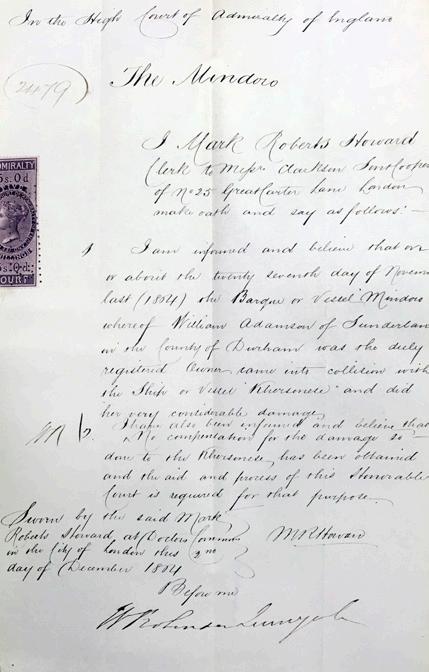 In the High Court of Admiralty of England
2479
The Mindoro
ADMIRALTY
5s. 0d
5s. 0d.
COURT
I Mark Roberts Howard
Clerk to Messrs Clarkson Son & Cooper
of No 25 Great Carter Lane London
make oath and say as follows:—
1 I am informed and believe that on
or about the twenty seventh day of Novem
last (1864) the Barque or Vessel Mindoro
whereof William Adamson of Sunderlan
in the County of Durham was the duly
registered Owner came into collision with
the Ship or Vessel "Khersonese" and did
her very considerable damage
2. I have also been informed and believe that
No compensation for the damage so
done to the Khersonese has been obtained
and the aid and process of this Honorable
Court is required for that purpose
Sworn by the said Mark
Roberts Howard at Doctors Commons
in the City of London this 2nd
day of December 1864
M R Howard
Before me